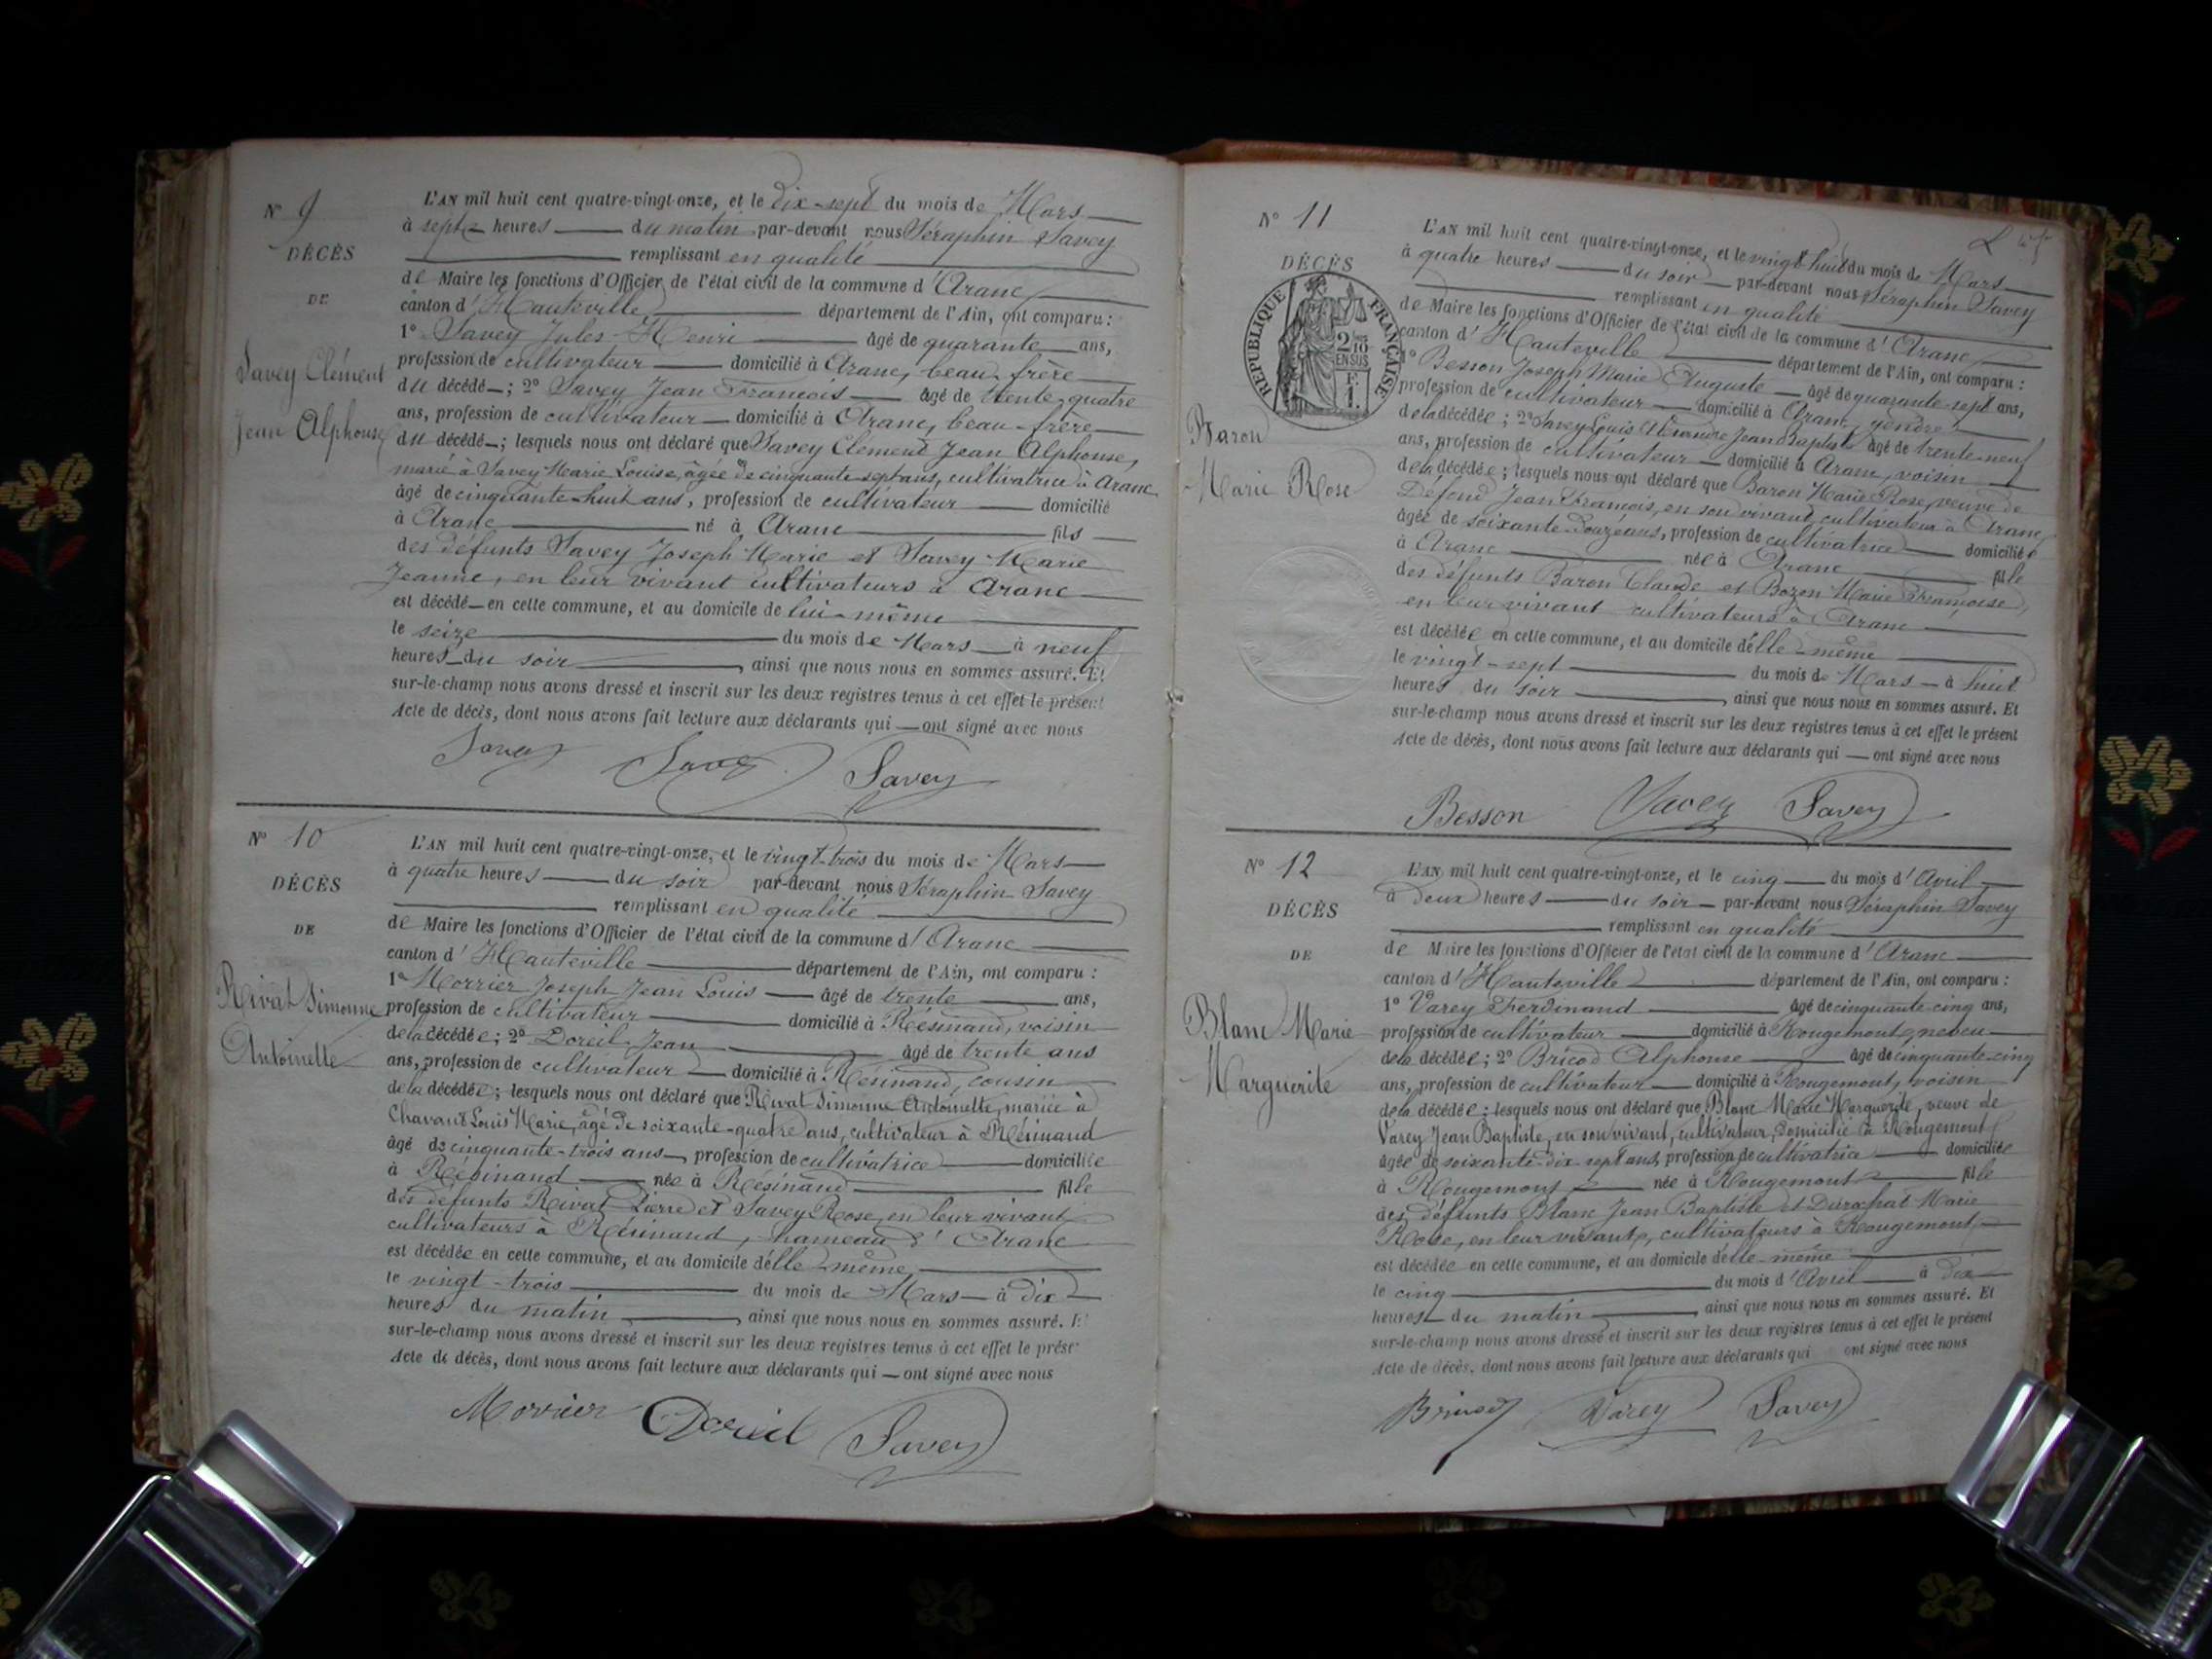 N° 9
DÉCÈS
DE
Savey Clément
Jean Alphonse
L'AN mil huit cent quatre-vingt-onze, et le Dix-sept du mois de Mars
à sept heures du matin par-devant nous Séraphin Savey
remplissant en qualité
de Maire les fonctions d'Officier de l'état civil de la commune d'Aranc
canton d'Hauteville département de l'Ain, ont comparu :
1° Savey Jules Henri âgé de quarante ans,
profession de cultivateur domicilié à Aranc, beau frère
du décédé ; 2° Savey Jean François âgé de trente quatre
ans, profession de cultivateur domicilié à Aranc, beau-frère
du décédé ; lesquels nous ont déclaré que Savey Clément Jean Alphonse,
marié à Savey Marie Louise, âgée de cinquante sept ans, cultivatrice à Aranc
âgé de cinquante-huit ans, profession de cultivateur domicilié
à Aranc né à Aranc fils
des défunts Savey Joseph Marie et Savey Marie
Jeanne, en leur vivant cultivateurs à Aranc
est décédé en cette commune, et au domicile de lui-même
le seize du mois de Mars à neuf
heures du soir, ainsi que nous nous en sommes assuré. Et
sur-le-champ nous avons dressé et inscrit sur les deux registres tenus à cet effet le présent
Acte de décès, dont nous avons fait lecture aux déclarants qui ont signé avec nous
Savey Savey Savey
N° 10
DÉCÈS
DE
Rivat Simonne
Antoinette
L'AN mil huit cent quatre-vingt-onze, et le vingt-trois du mois de Mars
à quatre heures du soir par-devant nous Séraphin Savey
remplissant en qualité
de Maire les fonctions d'Officier de l'état civil de la commune d'Aranc
canton d'Hauteville département de l'Ain, ont comparu :
1° Morrier Joseph Jean Louis âgé de trente ans,
profession de cultivateur domicilié à Résinand, voisin
de la décédée ; 2° Doreil Jean âgé de trente ans
ans, profession de cultivateur domicilié à Résinand, cousin
de la décédée ; lesquels nous ont déclaré que Rivat Simonne Antoinette, mariée à
Chavant Louis Marie, âgé de soixante-quatre ans, cultivateur à Résinand
âgé de cinquante-trois ans, profession de cultivatrice domiciliée
à Résinand née à Résinand fille
des défunts Rivat Pierre et Savey Rose, en leur vivant
cultivateurs à Résinand, hameau d'Aranc
est décédée en cette commune, et au domicile d'elle-même
le vingt-trois du mois de Mars à dix
heures du matin, ainsi que nous nous en sommes assuré. E
sur-le-champ nous avons dressé et inscrit sur les deux registres tenus à cet effet le prése
Acte de décès, dont nous avons fait lecture aux déclarants qui ont signé avec nous
Morrier Doreil Savey
N° 11
DÉCÈS
RÉPUBLIQUE FRANÇAISE
2/10
EN SUS
F.
1.
Baron
Marie Rose
L'AN mil huit cent quatre-vingt-onze, et le vingt-huit du mois de Mars
à quatre heures du soir par-devant nous Séraphin Savey
remplissant en qualité
de Maire les fonctions d'Officier de l'état civil de la commune d'Aranc
canton d'Hauteville département de l'Ain, ont comparu :
1° Besson Joseph Marie Auguste âgé de quarante-sept ans,
profession de cultivateur domicilié à Aranc, gendre
de la décédée ; 2° Savey Louis Alexandre Jean Baptiste âgé de trente-neuf
ans, profession de cultivateur domicilié à Aranc, voisin
de la décédée ; lesquels nous ont déclaré que Baron Marie Rose, veuve de
Défond Jean François, en son vivant cultivateur à Aranc
âgée de soixante-douze ans, profession de cultivatrice domiciliée
à Aranc née à Aranc fille
des défunts Baron Claude et Bozon Marie Françoise,
en leur vivant cultivateurs à Aranc
est décédée en cette commune, et au domicile d'elle-même
le vingt-sept du mois de Mars à huit
heures du soir, ainsi que nous nous en sommes assuré. Et
sur-le-champ nous avons dressé et inscrit sur les deux registres tenus à cet effet le présent
Acte de décès, dont nous avons fait lecture aux déclarants qui ont signé avec nous
Besson Savey Savey
N° 12
DÉCÈS
DE
Blanc Marie
Marguerite
L'AN mil huit cent quatre-vingt-onze, et le cinq du mois d'Avril
à deux heures du soir par-devant nous Séraphin Savey
remplissant en qualité
de Maire les fonctions d'Officier de l'état civil de la commune d'Aranc
canton d'Hauteville département de l'Ain, ont comparu :
1° Varey Ferdinand âgé de cinquante-cinq ans,
profession de cultivateur domicilié à Rougemont, neveu
de la décédée ; 2° Bricod Alphonse âgé de cinquante-cinq
ans, profession de cultivateur domicilié à Rougemont, voisin
de la décédée ; lesquels nous ont déclaré que Blanc Marie Marguerite, veuve de
Varey Jean Baptiste, en son vivant, cultivateur, domicilié à Rougemont
âgée de soixante-dix-sept ans, profession de cultivatrice domiciliée
à Rougemont née à Rougemont fille
des défunts Blanc Jean Baptiste et Marie
Rose, en leur vivant, cultivateurs à Rougemont
est décédée en cette commune, et au domicile d'elle-même
le cinq du mois d'Avril à dix
heures du matin, ainsi que nous nous en sommes assuré. Et
sur-le-champ nous avons dressé et inscrit sur les deux registres tenus à cet effet le présent
Acte de décès, dont nous avons fait lecture aux déclarants qui ont signé avec nous
Bricod Varey Savey